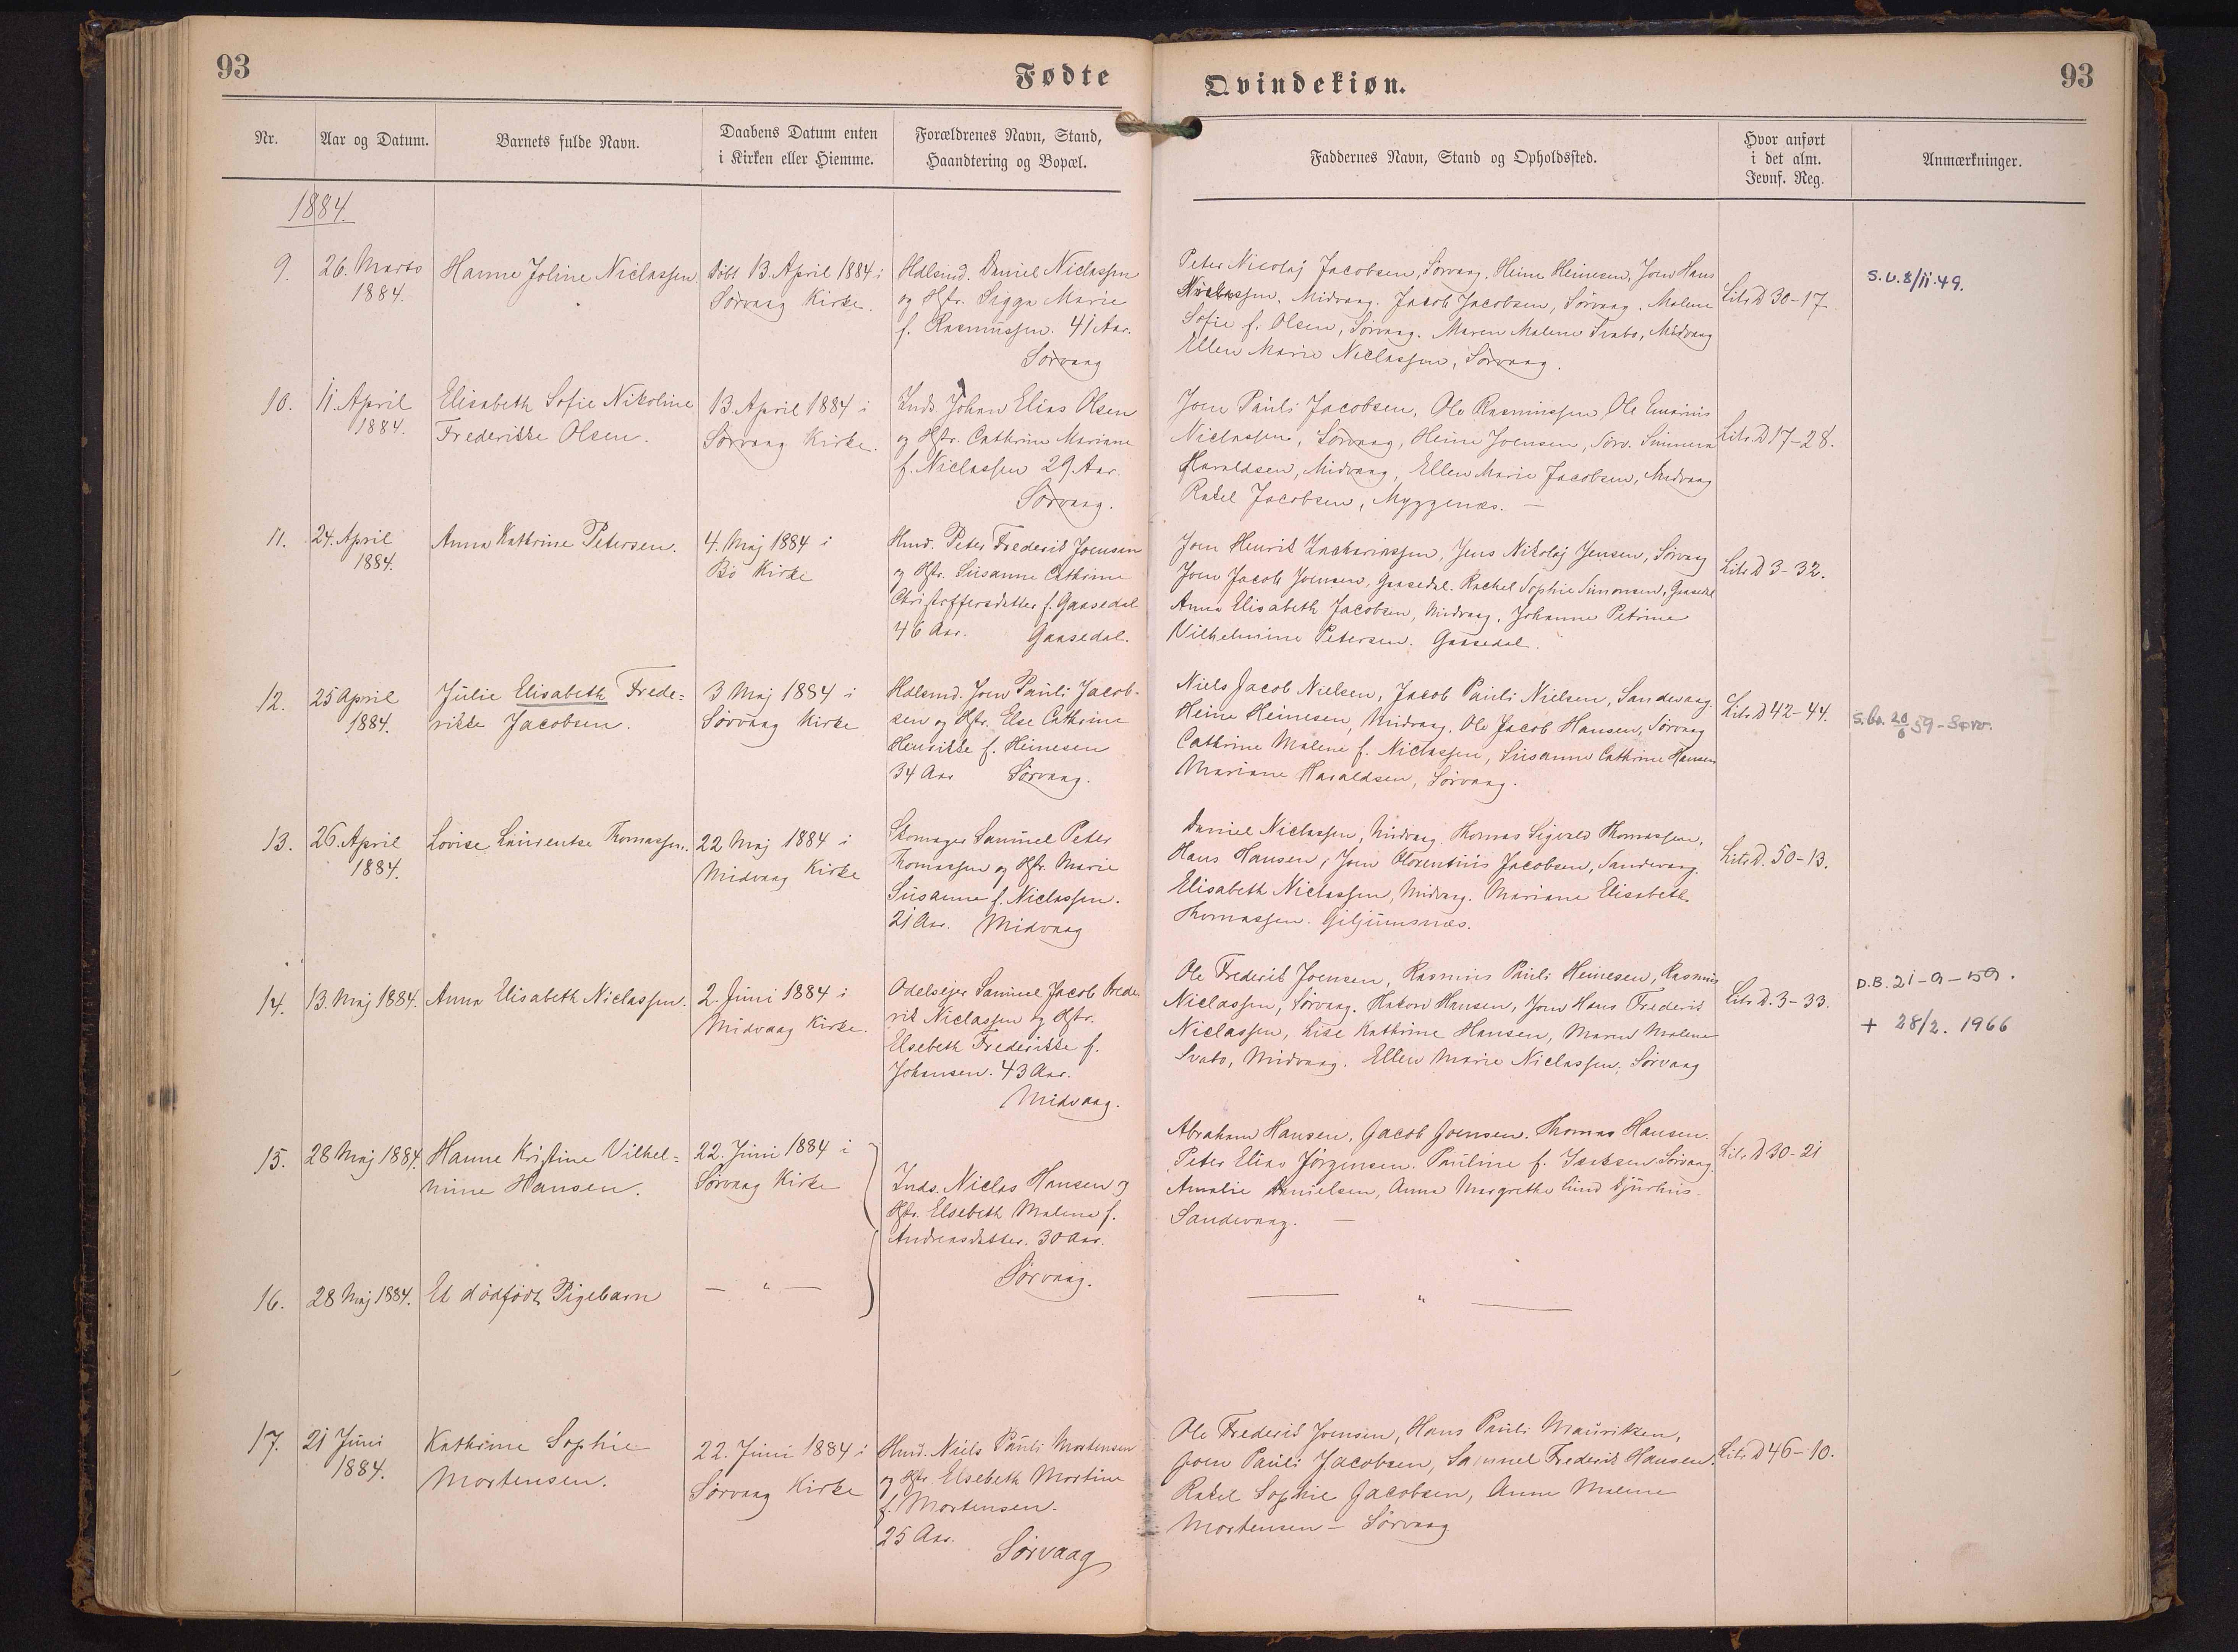 93
Fødte
Qvindekiøn.
93
Nr.
Aar og Datum.
Barnets fulde Navn.
Daabens Datum enten
i Kirken eller Hiemme.
Forældrenes Navn, Stand,
Haandtering og Bopæl.
Faddernes Navn, Stand og Opholdssted.
Hvor anført
i det alm.
Jevnf. Reg.
Anmærkninger.
1884.
9.
26. Marts
1884.
Hanne Joline Niclassen
Döbt 13 April 1884 i
Sörvaag Kirke.
Hdlsmd. Daniel Niclassen
og Hstr. Sigga Marie
f. Rasmussen. 41 Aar.
Sörvaag
Peter Nicolaj Jacobsen, Sörvaag, Heine Heinesen, Joen Hans
Niclassen, Midvaag. Jacob Jacobsen, Sörvaag. Malene
Sofie f. Olsen, Sörvaag. Maren Malene Svabo, Midvaag
Ellen Marie Niclassen, Sörvaag.
Litr D 30-17
S.v. 8/11.49.
10.
11. April
1884.
Elisabeth Sofie Nikoline
Frederikke Olsen.
13. April 1884 i
Sørvaag Kirke.
Inds. Johan Elias Olsen
og Hstr. Cathrine Mariane
f. Niclassen 29 Aar.
Sørvaag.
Joen Pauli Jacobsen, Ole Rasmussen, Ole
Niclassen, Sörvaag, Heine Joensen, Sörv.
Haraldsen, Midvaag, Ellen Marie Jacobsen, Midvaag
Rakel Jacobsen, Myggenæs. —
Litr. D 17-28.
11.
24. April
1884.
Anna Kathrine Petersen.
4. Maj 1884 i
Bö Kirke
Hmd. Peter Frederik Joensen
og Hstr. Susanne Cathrine
Christoffersdatter f. Gaasedal
46 Aar. Gaasedal.
Joen Henrik Zachariassen, Jens Nikolaj Jensen, Sörvaag
Joen Jacob Joensen, Gaasedal. Rachel Sophie Simonsen, Gaasedal
Anna Elisabeth Jacobsen, Midvaag, Johanne Petrine
Vilhelmine Petersen. Gaasedal.
Litr D 3-32.
12.
25 April
1884.
Julie Elisabeth Frede=
rikke Jacobsen.
3 Maj 1884 i
Sørvaag Kirke
Hdlsmd. Joen Pauli Jacob-
sen og Hstr. Else Cathrine
Henrikke f. Heinesen
34 Aar Sørvaag.
Niels Jacob Nielsen, Jacob Pauli Nielsen, Sandevaag.
Heine Heinesen, Midvaag. Ole Jacob Hansen, Sörvaag
Cathrine Malene f. Niclassen, Susanne Cathrine Hansen
Mariane Haraldsen, Sörvaag.
Litr. D 42-44.
13.
26. April
1884.
Lovise Laurentse Thomassen.
22 Maj 1884 i
Midvaag Kirke
Skomager Samuel Peter
Thomassen og Hstr. Marie
Susanne f. Niclassen.
21 Aar. Midvaag
Daniel Niclassen, Midvaag. Thomas Sigvald Thomassen,
Hans Hansen, Joen Florentius Jacobsen, Sandevaag.
Elisabeth Niclassen, Midvaag. Mariane Elisabeth
Thomassen. Giljumsnæs.
Litr D. 50-13.
14.
13. Maj 1884.
Anna Elisabeth Niclassen.
2. Juni 1884 i
Midvaag Kirke.
Odelsejer Samuel Jacob Frede
rik Niclassen og Hstr.
Elsebeth Frederikke f.
Johansen. 43 Aar.
Midvaag.
Ole Frederik Joensen, Rasmus Pauli Heinesen, Rasmus
Niclassen, Sörvaag. Hakon Hansen, Joen Hans Frederik
Niclassen, Lise Kathrine Hansen, Maren Malene
Svabo, Midvaag. Ellen Marie Niclassen, Sörvaag
Litr D. 3-33.
D.B. 21-9-59.
+ 28/2. 1966
15.
28 Maj 1884.
Hanne Kristine Vilhel=
mine Hansen.
22. Juni 1884 i
Sørvaag Kirke
Inds. Niclas Hansen og
Hstr. Elsebeth Malene f.
Andreasdatter. 30 Aar.
Sørvaag.
Abraham Hansen, Jacob Joensen. Thomas Hansen.
Peter Elias Jörgensen. Pauline f. Isaksen Sörvaag
Amalie Danielsen, Anna Margrethe Lund Djurhus.
Sandevaag. —
Litr D 30-21
16.
28 Maj 1884.
Et dödfödt Pigebarn
— " —
— " —
17.
21 Juni
1884.
Kathrine Sophie
Mortensen.
22. Juni 1884 i
Sørvaag Kirke
Hmd. Niels Pauli Mortensen
og Hstr. Elsebeth Mortine
f. Mortensen.
25 Aar. Sørvaag
Ole Frederik Joensen, Hans Pauli Mauritzen,
Joen Pauli Jacobsen, Samuel Frederik Hansen.
Rakel Sophie Jacobsen, Anne Malene
Mortensen — Sörvaag
Litr D 46-10.